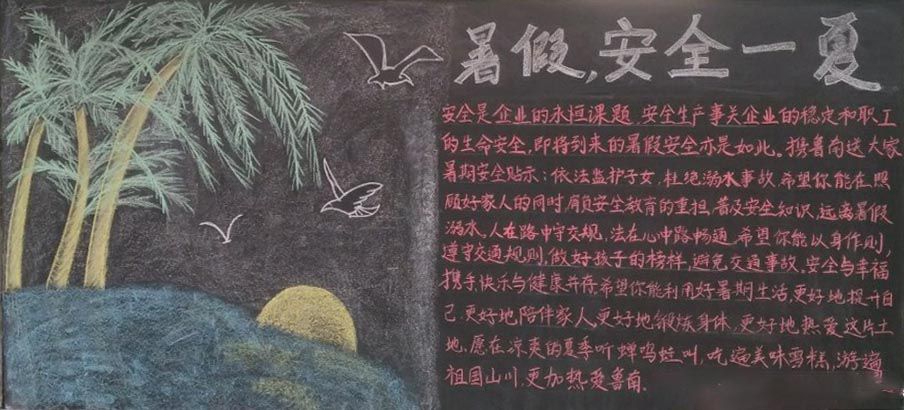 暑假,安全一夏
安全是企业的永恒课题,安全生产事关企业的稳定和职工
的生命安全,即将到来的暑假安全亦是如此。携鲁南送大家
暑期安全贴示:依法监护子女,杜绝溺水事故,希望你能在照
顾好家人的同时,肩负安全教育的重担,普及安全知识,远离暑假
溺水。人在路中守交规,法在心中路畅通,希望你能以身作则,
遵守交通规则,做好孩子的榜样,避免交通事故,安全与幸福
携手快乐与健康并存,希望你能利用好暑期生活,更好地提升自
己,更好地陪伴家人,更好地锻炼身体,更好地热爱这片土
地,愿在凉爽的夏季听蝉鸣蛙叫,吃遍美味雪糕,游遍
祖国山川,更加热爱鲁南.